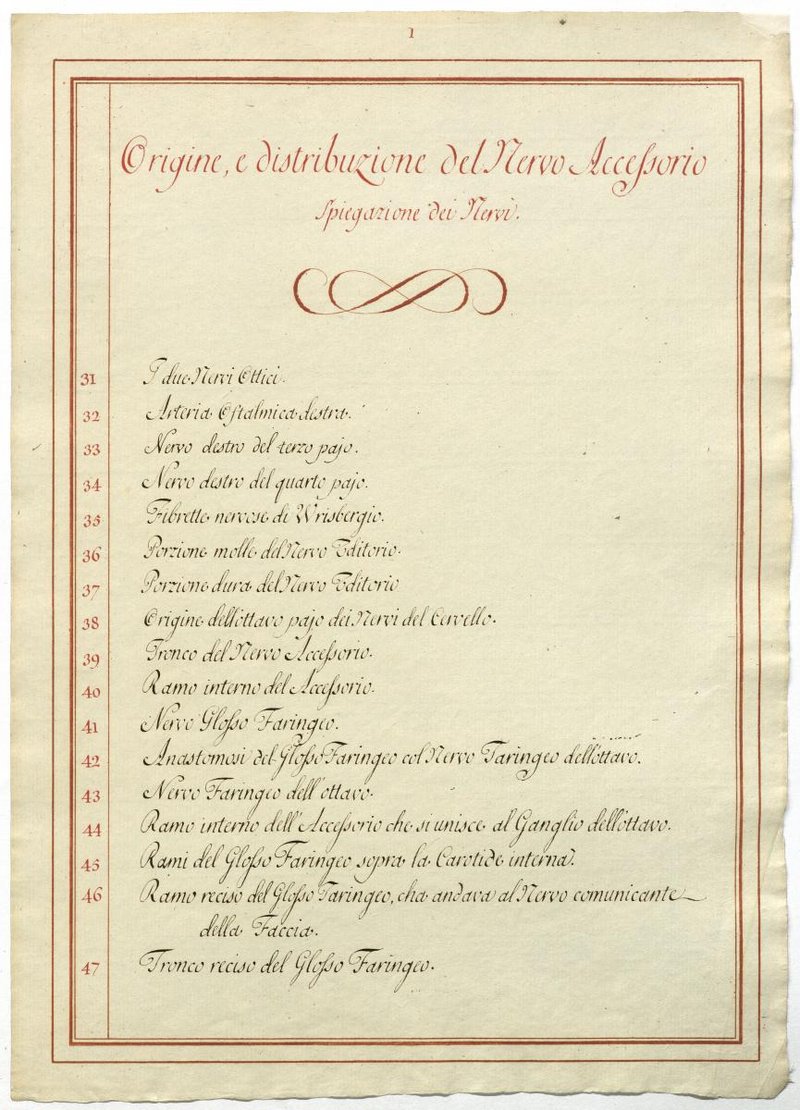 1
Origine, e distribuzione del Nervo Accessorio
Spiegazione dei Nervi.
31 I due Nervi Ottici.
32 Arteria Oftalmica destra.
33 Nervo destro del terzo pajo.
34 Nervo destro del quarto pajo.
35 Fibrette nervose di Wrisbergio.
36 Porzione molle del Nervo Editorio.
37 Porzione dura del Nervo Editorio
38 Origine dell'ottavo pajo dei Nervi del Cervello.
39 Tronco del Nervo Accessorio.
40 Ramo interno del Accessorio.
41 Nervo Glosso Faringeo.
42 Anastomosi del Glosso Faringeo col Nervo Faringeo dell'ottavo.
43 Nervo Faringeo dell'ottavo.
44 Ramo interno dell'Accessorio che si unisce al Ganglio dell'ottavo.
45 Rami del Glosso Faringeo sopra la Carotide interna.
46 Ramo reciso del Glosso Faringeo, cha andava al Nervo comunicante
della Faccia.
47 Tronco reciso del Glosso Faringeo.